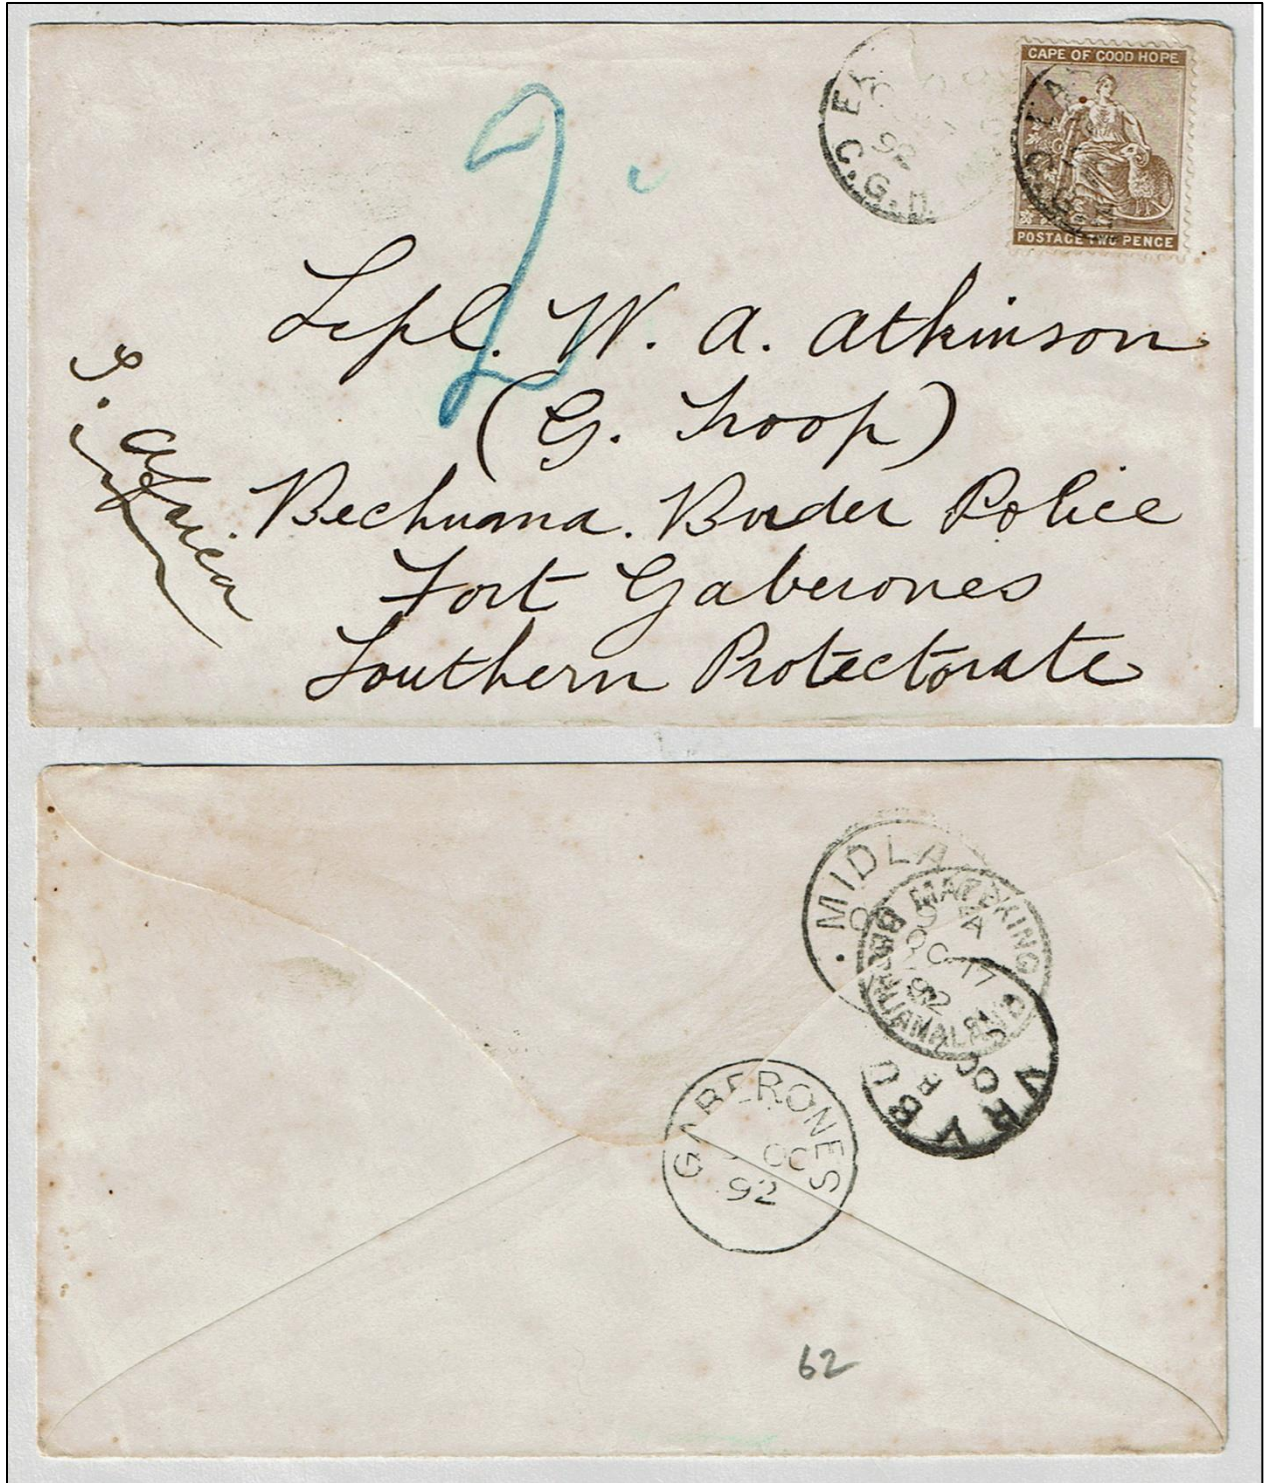 CAPE OF GOOD HOPE
POSTAGE TWO PENCE
C.G.H.
92
2
Lcpl. W. A. Atkinson
(G. Troop)
Bechuana. Border Police
Fort Gaberones
Southern Protectorate
S. Africa
MIDLA
MAFEKING
A
OC 17
92
BECHUANALAND
VRYBU
OC
GABERONES
OC
92
62